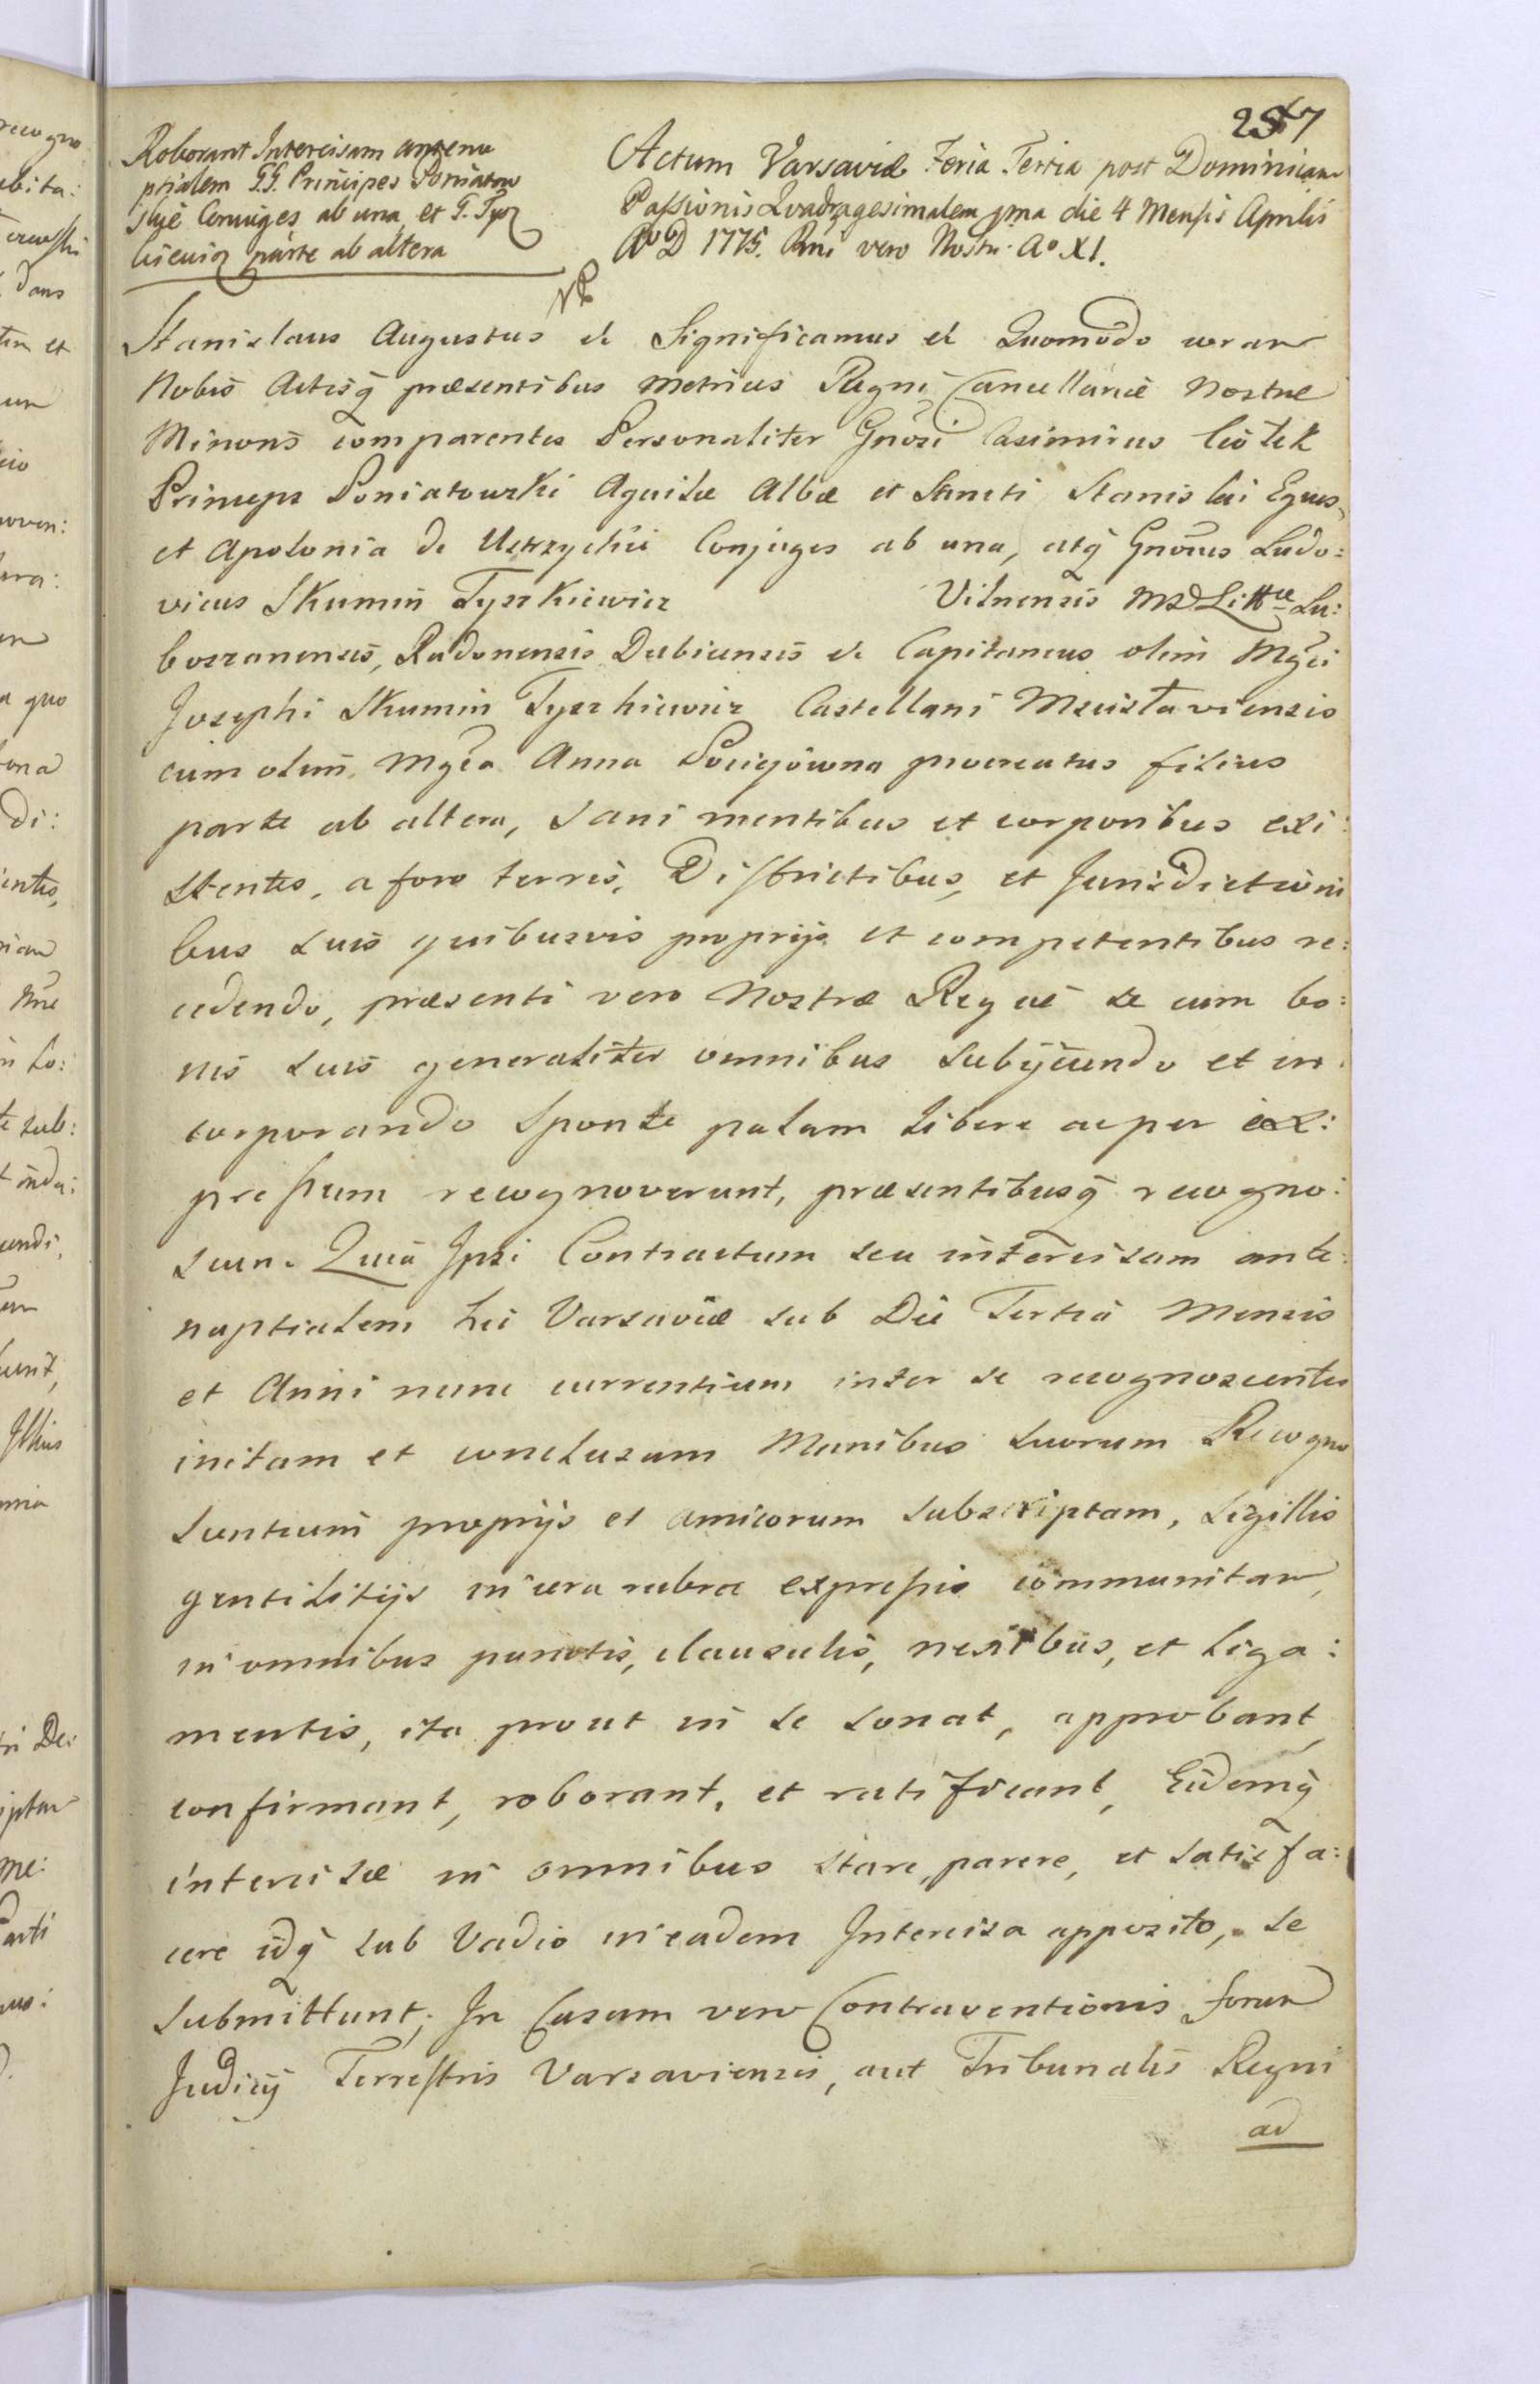 257
Roborant Intercisam antenu
ptialem G.G. Principes Poniatow
skie Coniuges ab una et G. Tysz
kiewicz parte ab altera
Actum Varsaviæ Feria Tertia post Dominicam
Passionis Quadragesimalem pma die 4 Mensis Aprilis
Aº D 1775. Rni vero Nostri Aº XI.
NB
Stanislaus Augustus &c Significamus &c Quomodo coram
Nobis Actisq præsentibus Metrices Regni Cancellariæ Nostræ
Minoris comparentes Personaliter Gnosi Casimirus Ciołek
Princeps Poniatowski Aquilæ Albæ et Sancti Stanislai Eques,
et Apolonia de Ustrzyckie Conjuges ab una, atq Gnosus Ludo:
vicus Skumin Tyszkiewicz Vilnensis MD Littæ Lu:
boszanensis, Radonensis Dubicensis &c Capitaneus olim Mgci
Josephi Skumin Tyszkiewicz Castellani Mscisłaviensis
cum olim Mgca Anna Pociejówna procreatus filius
parte ab altera, sani mentibus et corporibus exi:
stentes, a foro terris, Districtibus, et Jurisdictioni
bus suis quibusvis proprijs et competentibus re:
cedendo, præsenti vero Nostræ Regiæ se cum bo:
nis suis generaliter omnibus subijciendo et in:
corporando sponte palam libere ac per ex:
pressum recognoverunt, præsentibusq recogno:
scun. Quia Ipsi Contractum seu intercisam ante:
nuptialem hic Varsaviæ sub Die Tertia Mensis
et Anni nunc currentium inter se recognoscentes
initam et conclusam Manibus suorum Recogno
scentium proprijs et amicorum subscriptam, sigillis
gentilitijs in cera rubra expressis communitam,
in omnibus punctis, clausulis, nexibus, et liga:
mentis, ita prout in se sonat, approbant,
confirmant, roborant, et ratificant, Eidemq
intercisæ in omnibus stare, parere, et satisfa:
cere idq sub Vadio in eadem Intercisa apposito, se
submittunt; In Casum vero Contraventionis forum
Judicij Terrestris Varsaviensis, aut Tribunalis Regni
ad